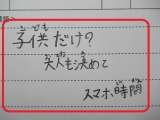 子供だけ?
大人も決めて
スマホ時間